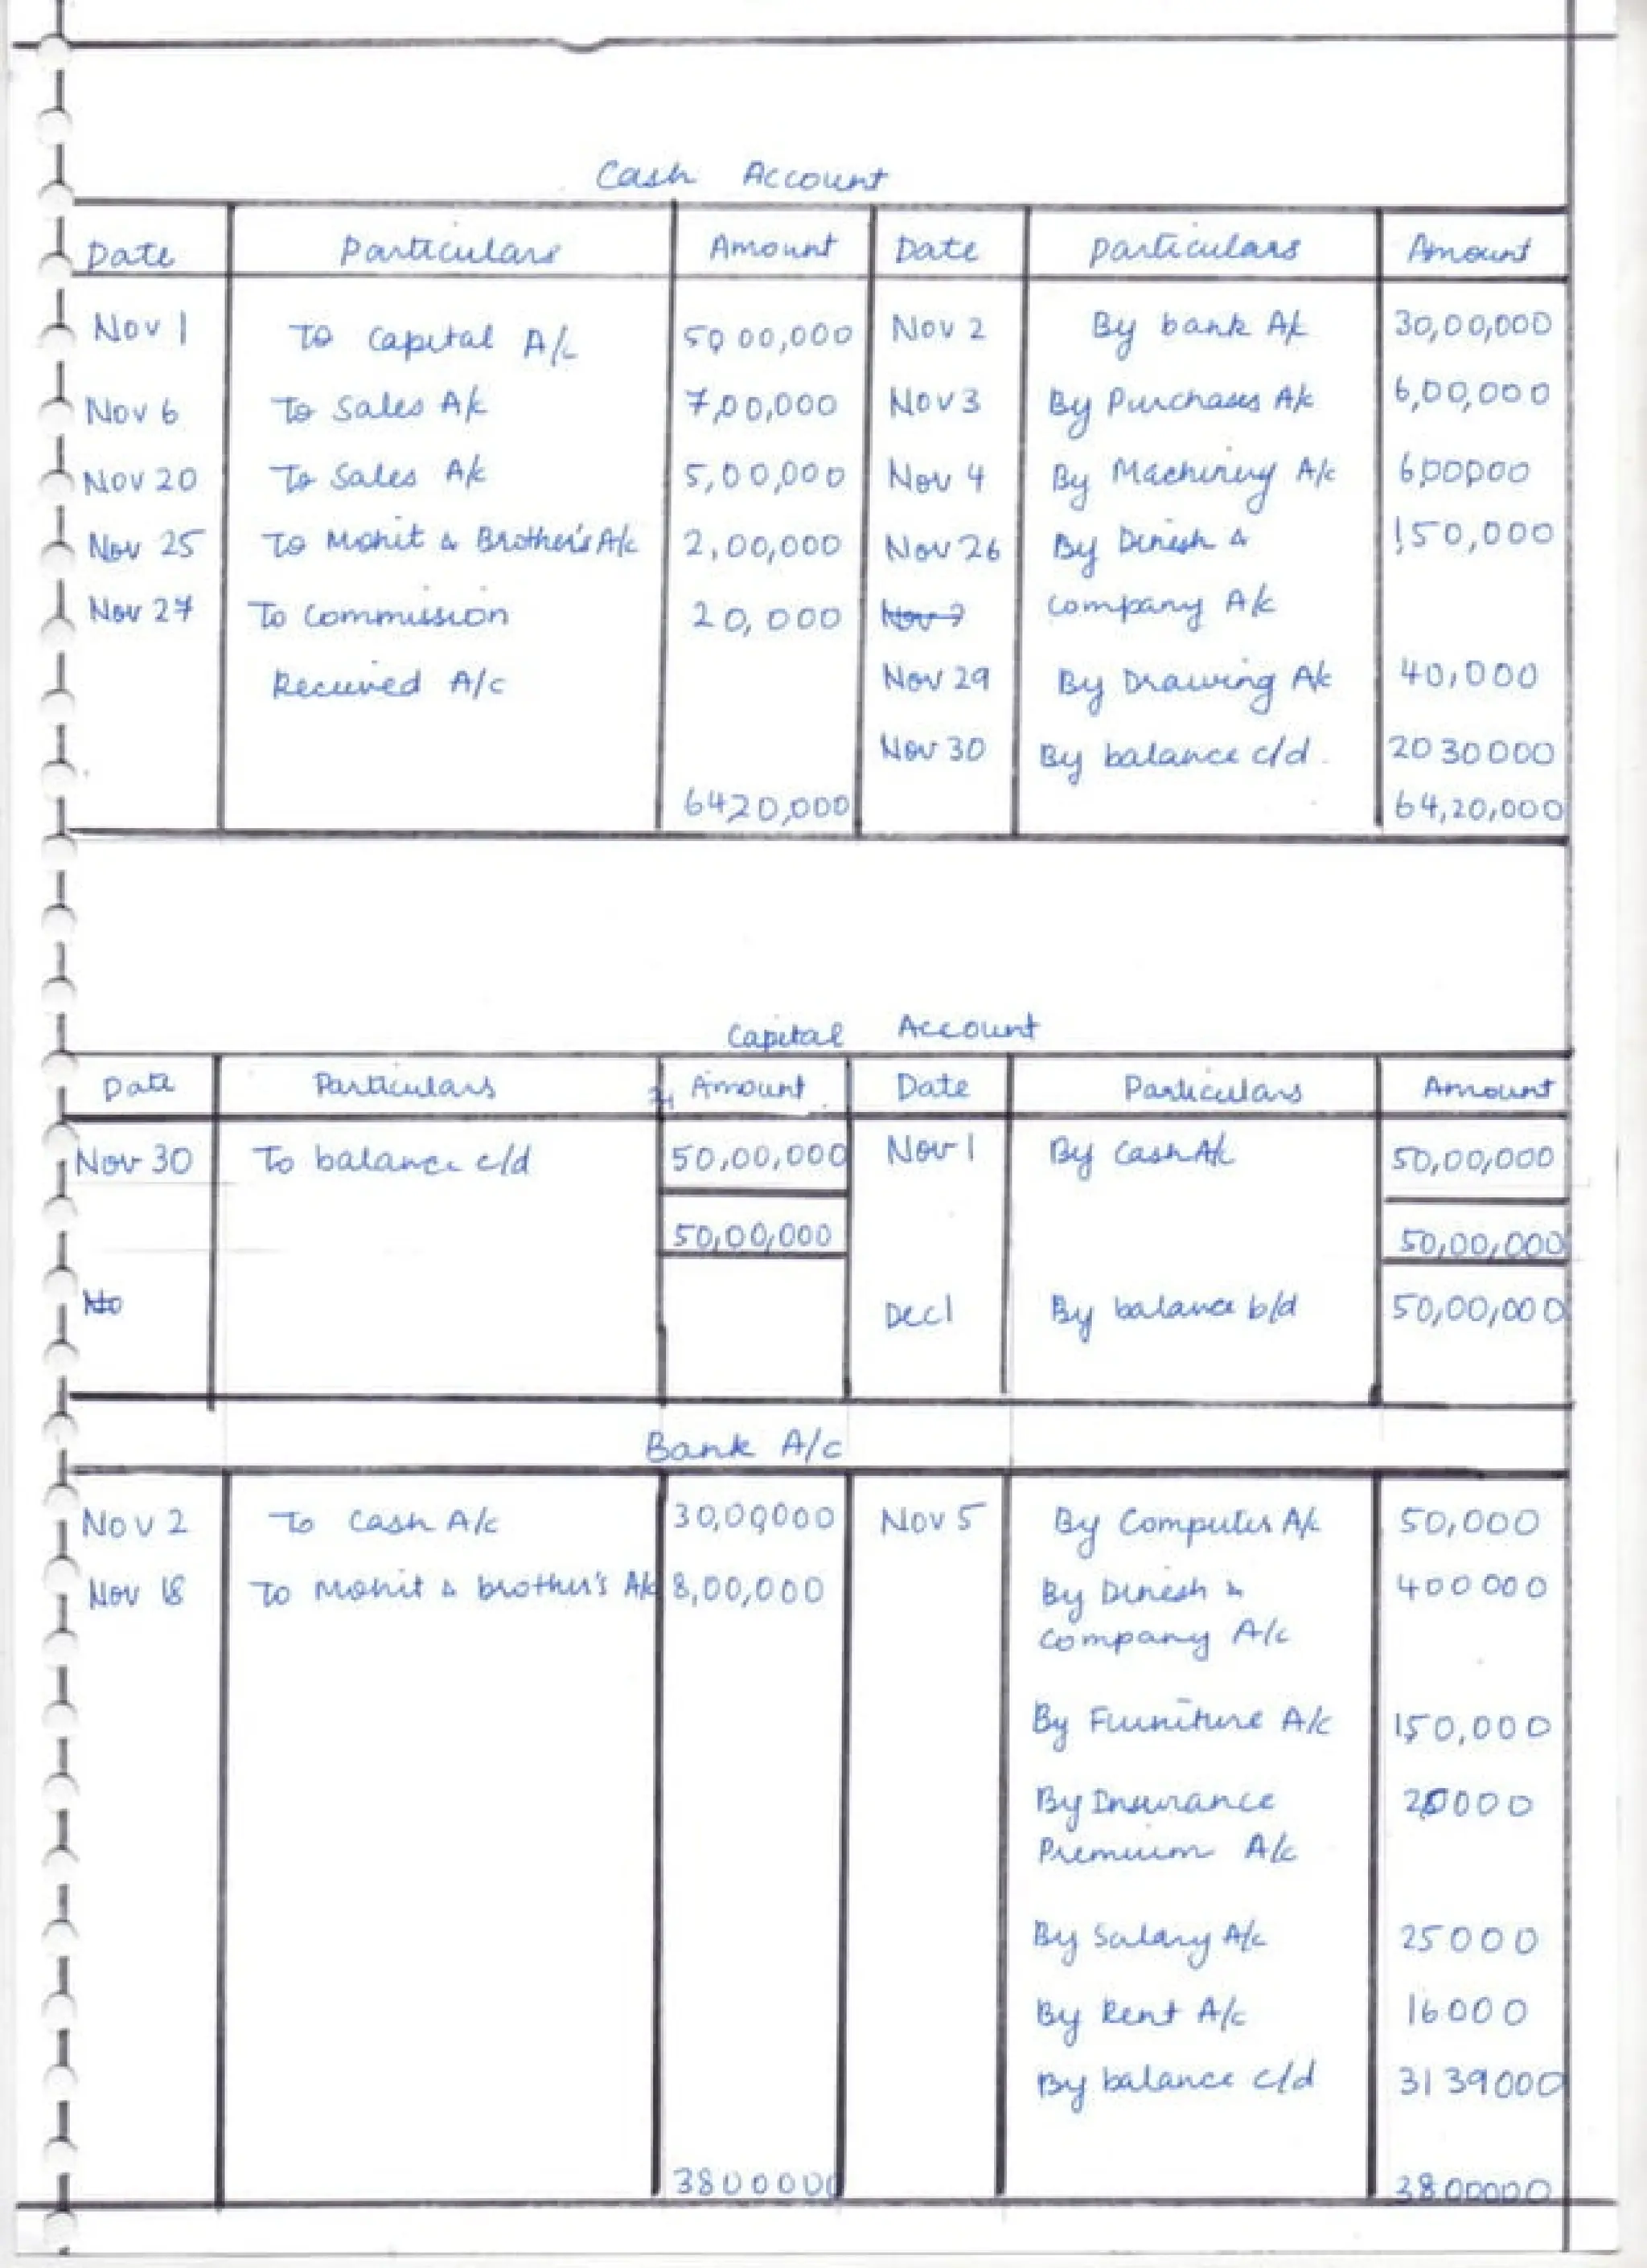 Cash Account
Date Particulars Amount Date Particulars Amount
Nov 1 To Capital A/c 5000,000 Nov 2 By bank A/c 30,00,000
Nov 6 To Sales A/c 7,00,000 Nov 3 By Purchases A/c 6,00,000
Nov 20 To Sales A/c 5,00,000 Nov 4 By Machinery A/c 600000
Nov 25 To Mohit & Brother's A/c 2,00,000 Nov 26 By Dinesh & 150,000
Nov 27 To Commission 20,000 Nov 7 Company A/c
Received A/c Nov 29 By Drawing A/c 40,000
Nov 30 By balance c/d 2030000
6420,000 64,20,000
Capital Account
Date Particulars Amount Date Particulars Amount
Nov 30 To balance c/d 50,00,000 Nov 1 By Cash A/c 50,00,000
50,00,000 50,00,000
No Dec 1 By balance b/d 50,00,000
Bank A/c
Nov 2 To Cash A/c 30,00000 Nov 5 By Computer A/c 50,000
Nov 18 To Mohit & brother's A/c 8,00,000 By Dinesh & 400000
Company A/c
By Furniture A/c 150,000
By Insurance 20000
Premium A/c
By Salary A/c 25000
By Rent A/c 16000
By balance c/d 3139000
3800000 3800000